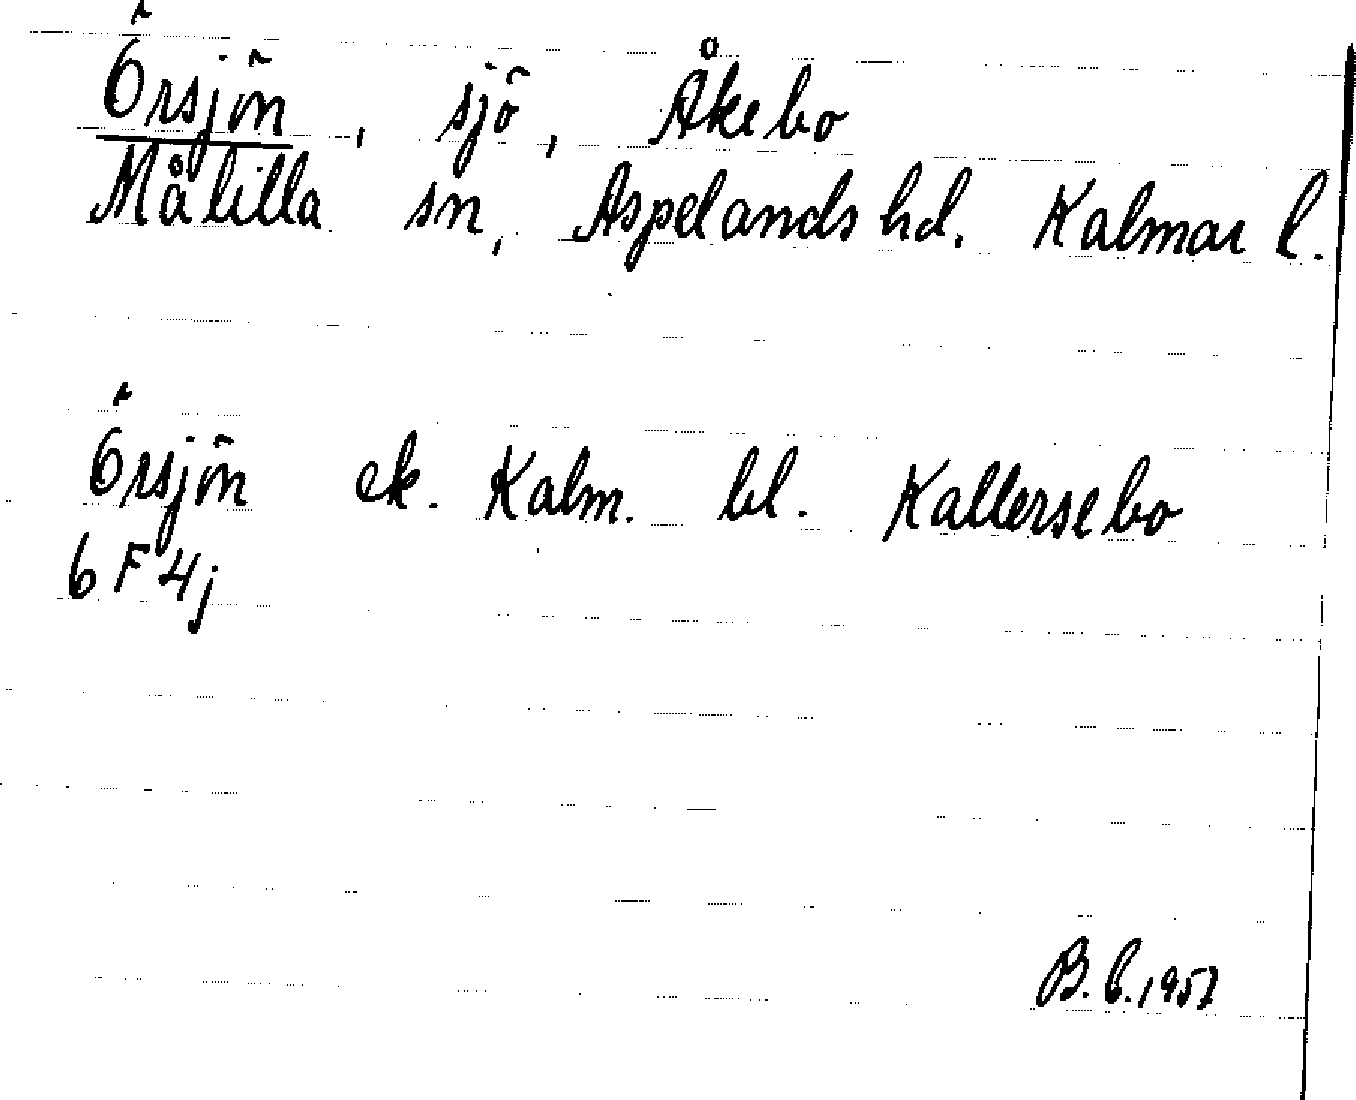 Örsjön, sjö, Åkebo
Målilla sn, Aspelands hd. Kalmar l.
Örsjön ek. Kalm. bl. Kallersebo
6 F 4j
B.C. 1957